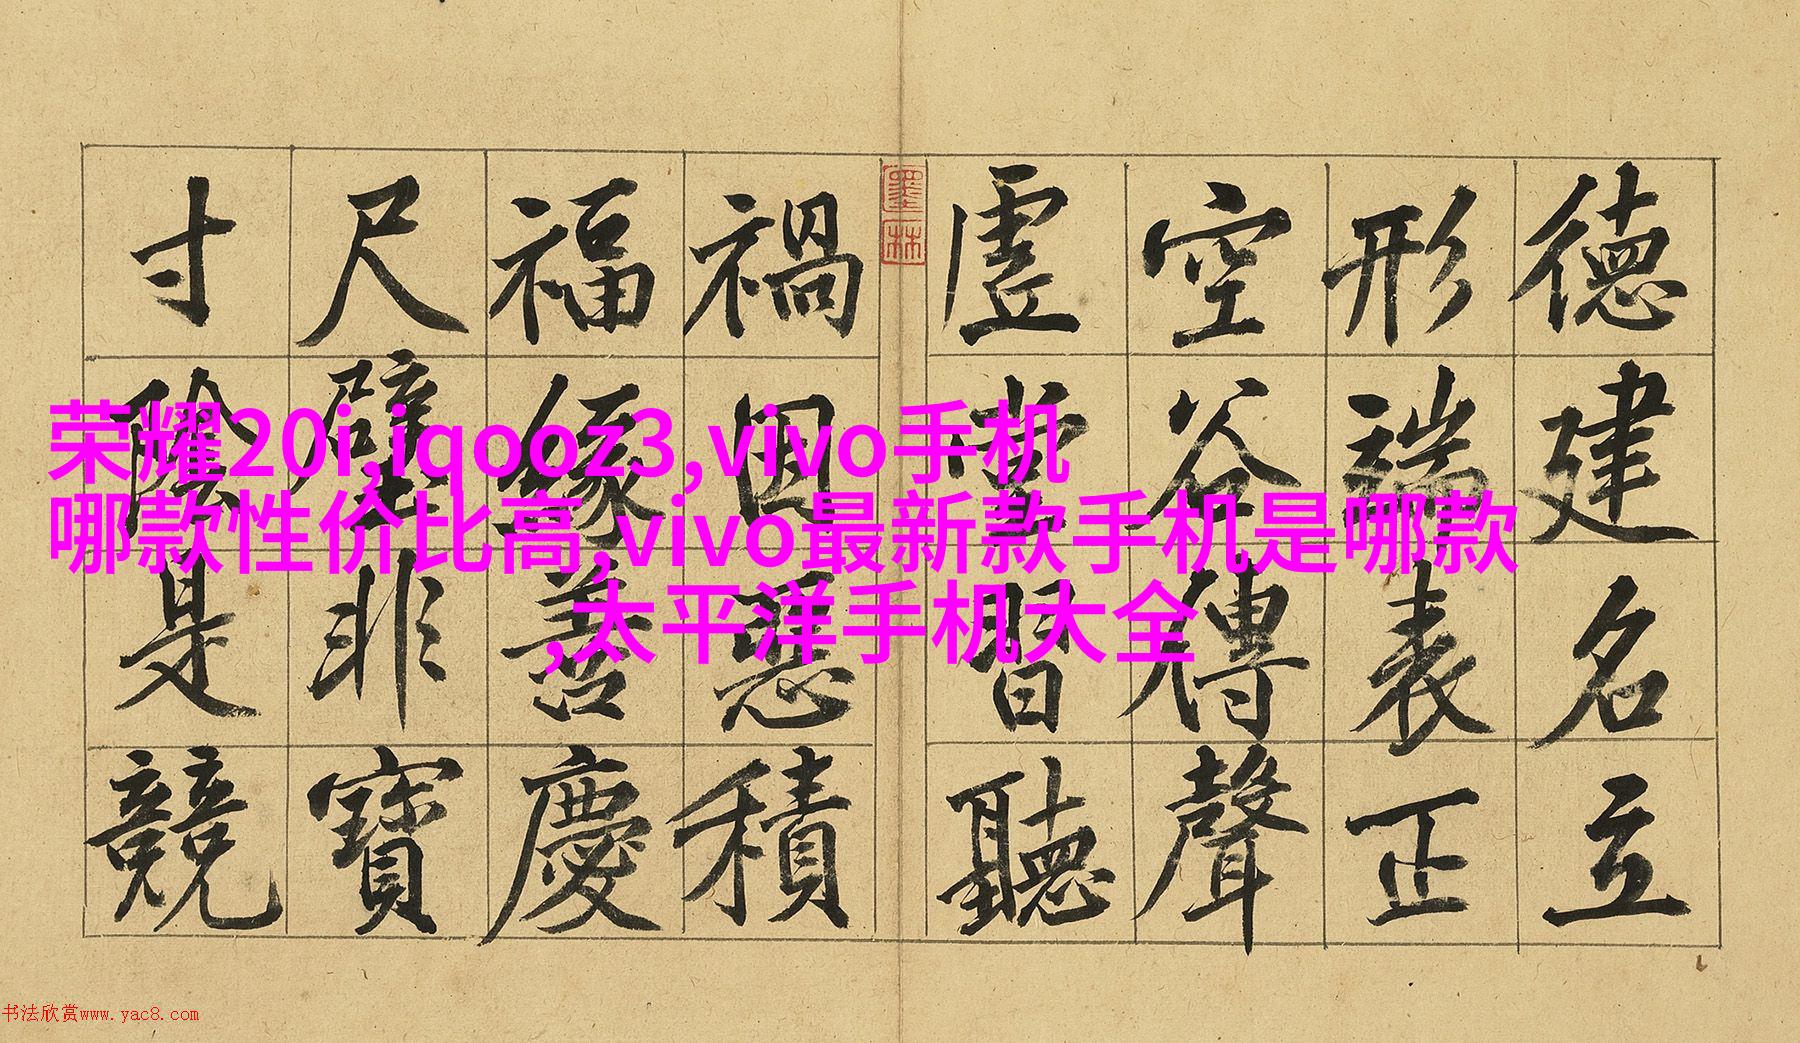 德建名立
形端表正
空谷傳聲
虛堂習聽
墨林
禍因惡積
福緣善慶
尺璧非寶
寸陰是競
荣耀20i,iqooz3,vivo手机
哪款性价比高,vivo最新款手机是哪款
,太平洋手机大全
书法欣赏www.yac8.com